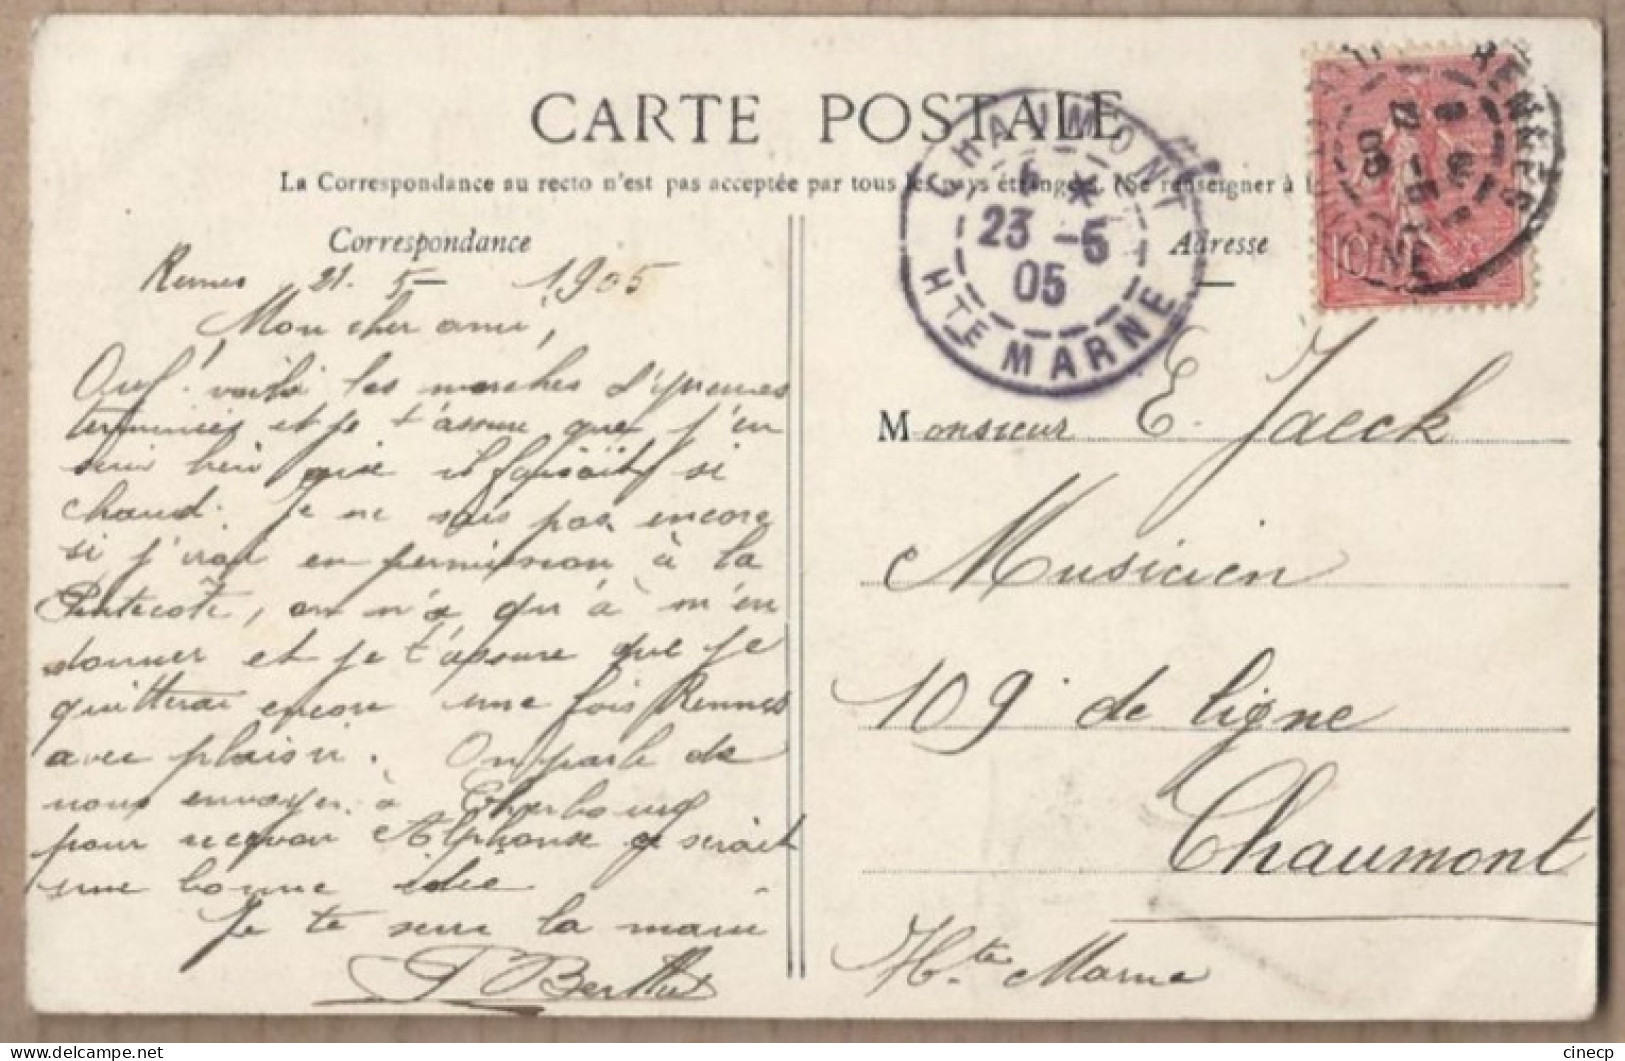 CARTE POSTALE
La Correspondance au recto n'est pas acceptée par tous les pays étrangers. (Se renseigner à l
Correspondance
Adresse
CHAUMONT
23 -5
05
HTE MARNE
RENNES
05
10
Rennes 21. 5 - 1905
Mon cher ami,
Ouf! voilà les marches d'épreuves
terminées et je t'assure que j'en
suis bien aise il faisait si
chaud. Je ne sais pas encore
si j'irai en permission à la
Pentecôte, on n'a qu'à m'en
donner et je t'assure que je
quitterai encore une fois Rennes
avec plaisir. On parle de
nous envoyer à Cherbourg
pour recevoir Alphonse ça serait
une bonne idée
Je te serre la main
P Berthus
Monsieur E. Jaeck
Musicien
109 de ligne
Chaumont
Hte Marne
cinecp